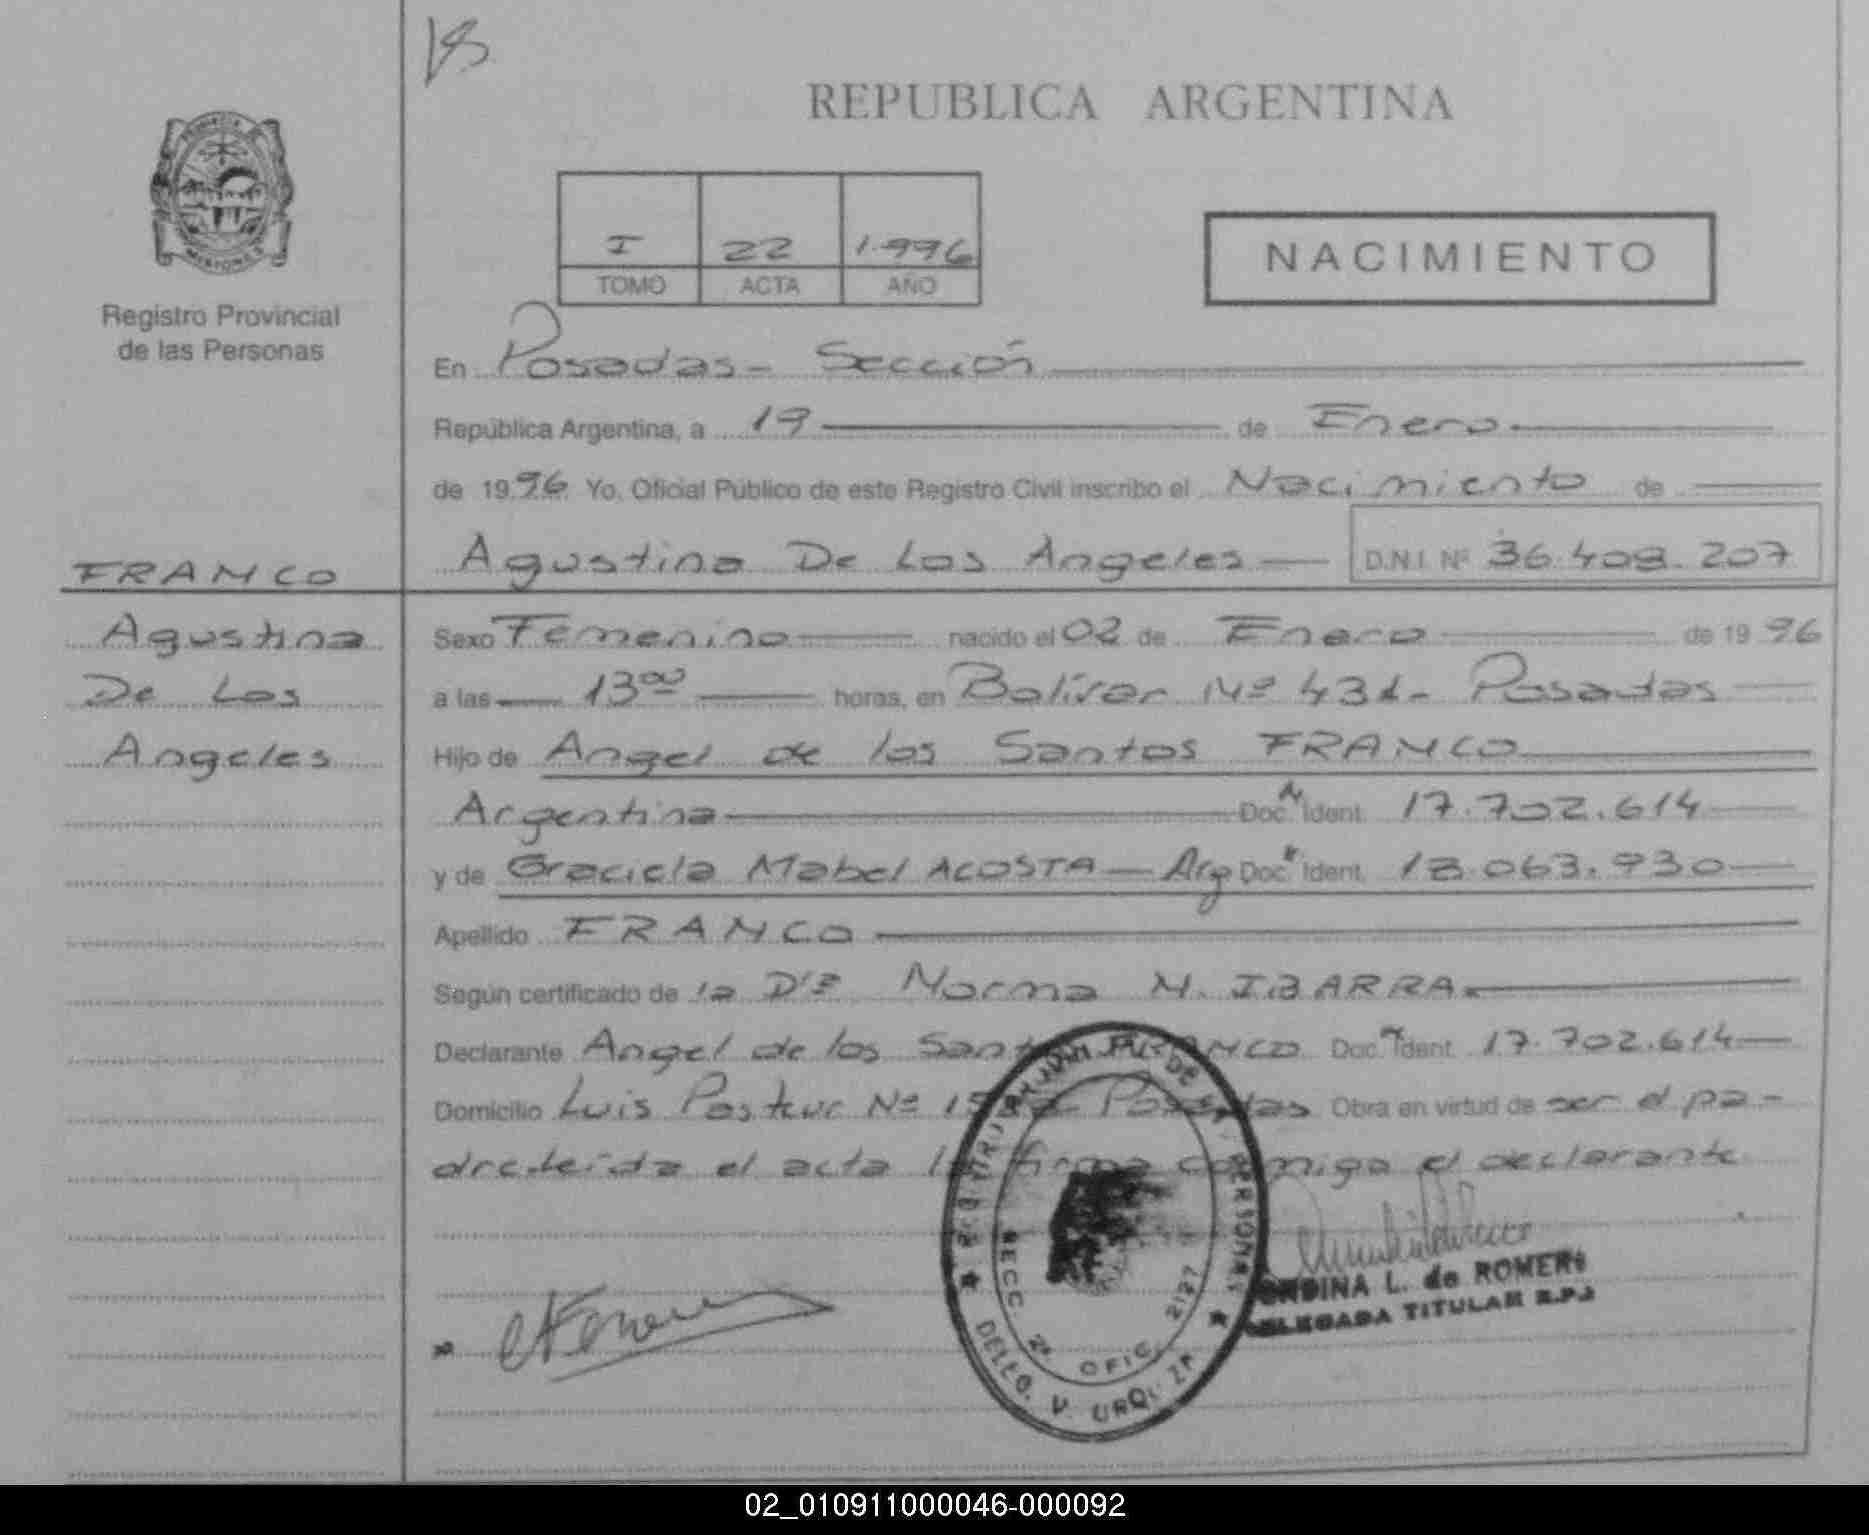 REPUBLICA ARGENTINA
PROVINCIA DE MISIONES
Registro Provincial
de las Personas
I 22 1.996
TOMO ACTA AÑO
NACIMIENTO
En Posadas - Sección
República Argentina, a 19 de Enero
de 1996 Yo, Oficial Público de este Registro Civil inscribo el Nacimiento de
Agustina De Los Angeles D.N.I. Nº 36.408.207
FRANCO
Agustina
De Los
Angeles
Sexo Femenino nacido el 02 de Enero de 1996
a las 13⁰⁰ horas, en Bolívar Nº 431 - Posadas
Hijo de Angel de los Santos FRANCO
Argentina Doc. N Ident. 17.702.614
y de Graciela Mabel ACOSTA - Arg Doc. Ident. 18.063.930
Apellido FRANCO
Según certificado de la Dra Norma N. IBARRA
Declarante Angel de los Santos FRANCO Doc. N Ident. 17.702.614
Domicilio Luis Pasteur Nº Posadas Obra en virtud de ser el pa-
dre. leída el acta la firma conmigo el declarante
DE LAS PERSONAS
SECC. 2ª OFIC. 2127
DELEG. V. URQUIZA
L. de ROMERO
DELEGADA TITULAR R.P.P
02_010911000046-000092